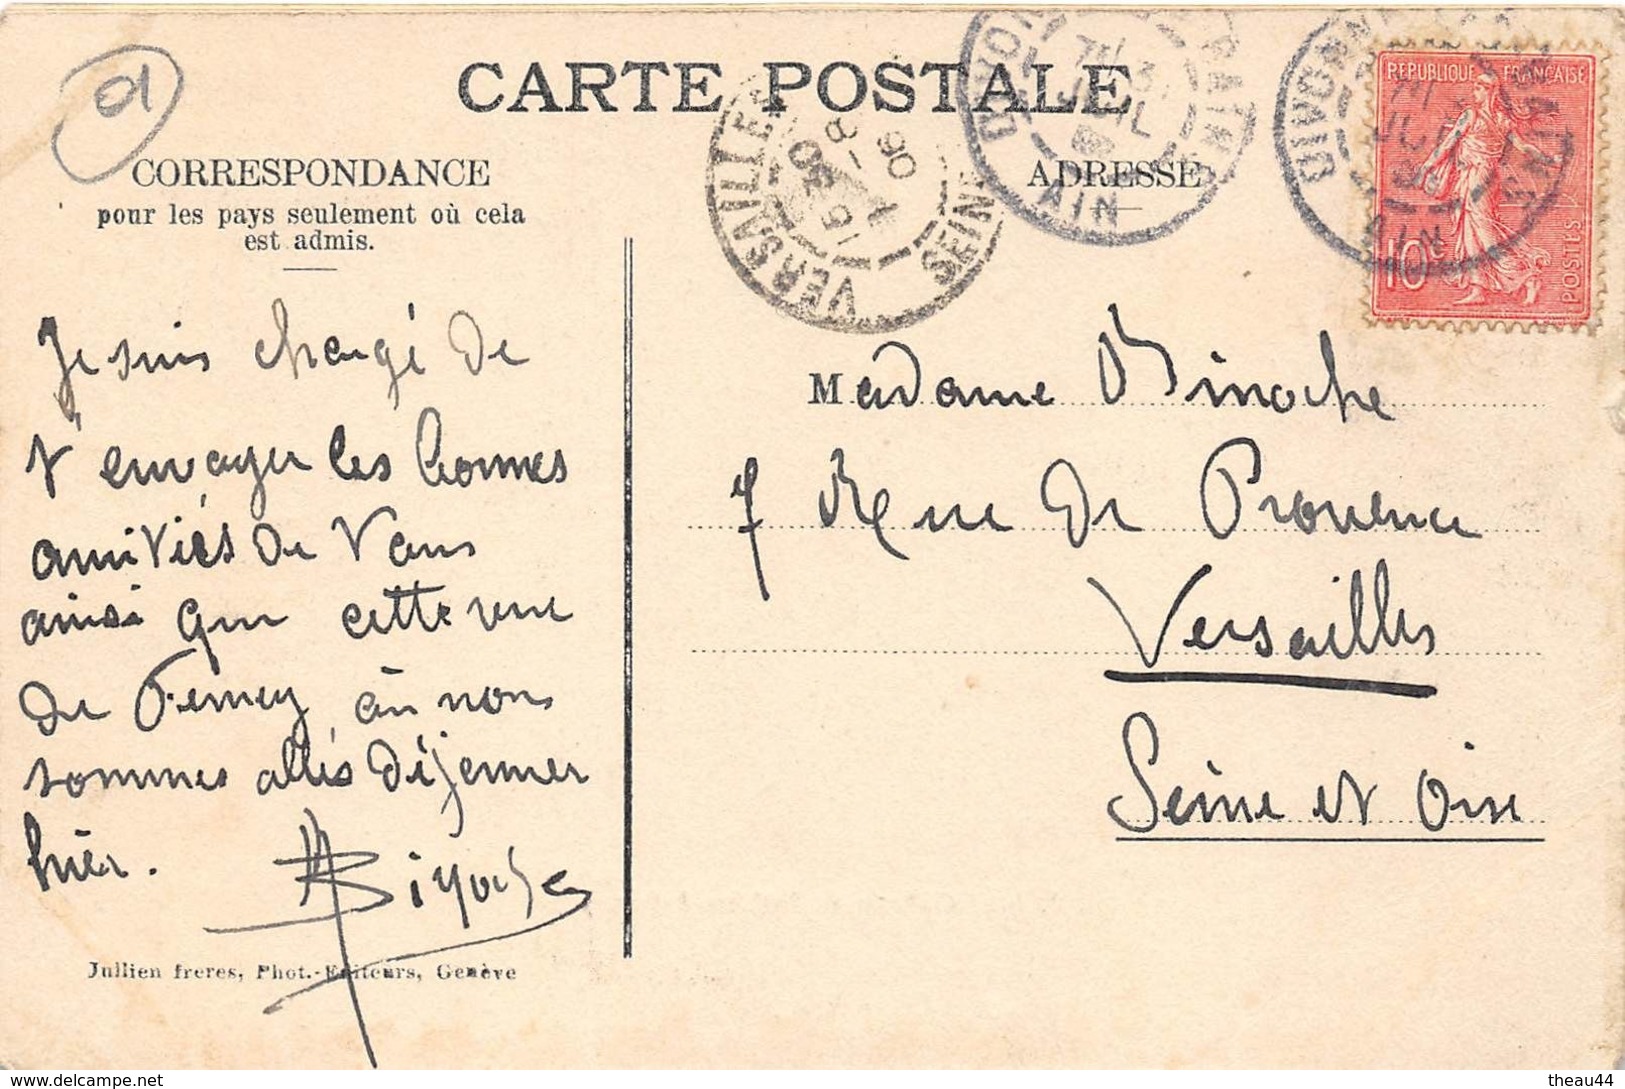 01
CARTE POSTALE
CORRESPONDANCE
pour les pays seulement où cela
est admis.
ADRESSE
VERSAILLES
SEINE
8-30
06
AIN
JUIL
AIN
REPUBLIQUE FRANÇAISE
10c
POSTES
Je suis chargé de
t'envoyer les bonnes
amitiés de Vans
ainsi que cette vue
de Ferney où nous
sommes allés déjeuner
hier.
Binoche
Madame Binoche
7 Rue de Provence
Versailles
Seine et Oise
Jullien freres, Phot.-Editeurs, Genève
theau44